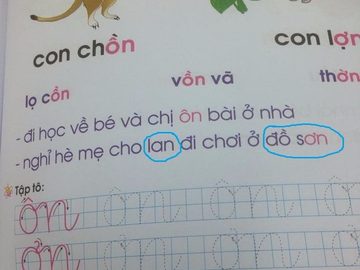 con chồn
con lợn
lọ cồn
vồn vã
thờn
- đi học về bé và chị ôn bài ở nhà
- nghỉ hè mẹ cho lan đi chơi ở đồ sơn
Tập tô:
ôn ôn ôn ôn